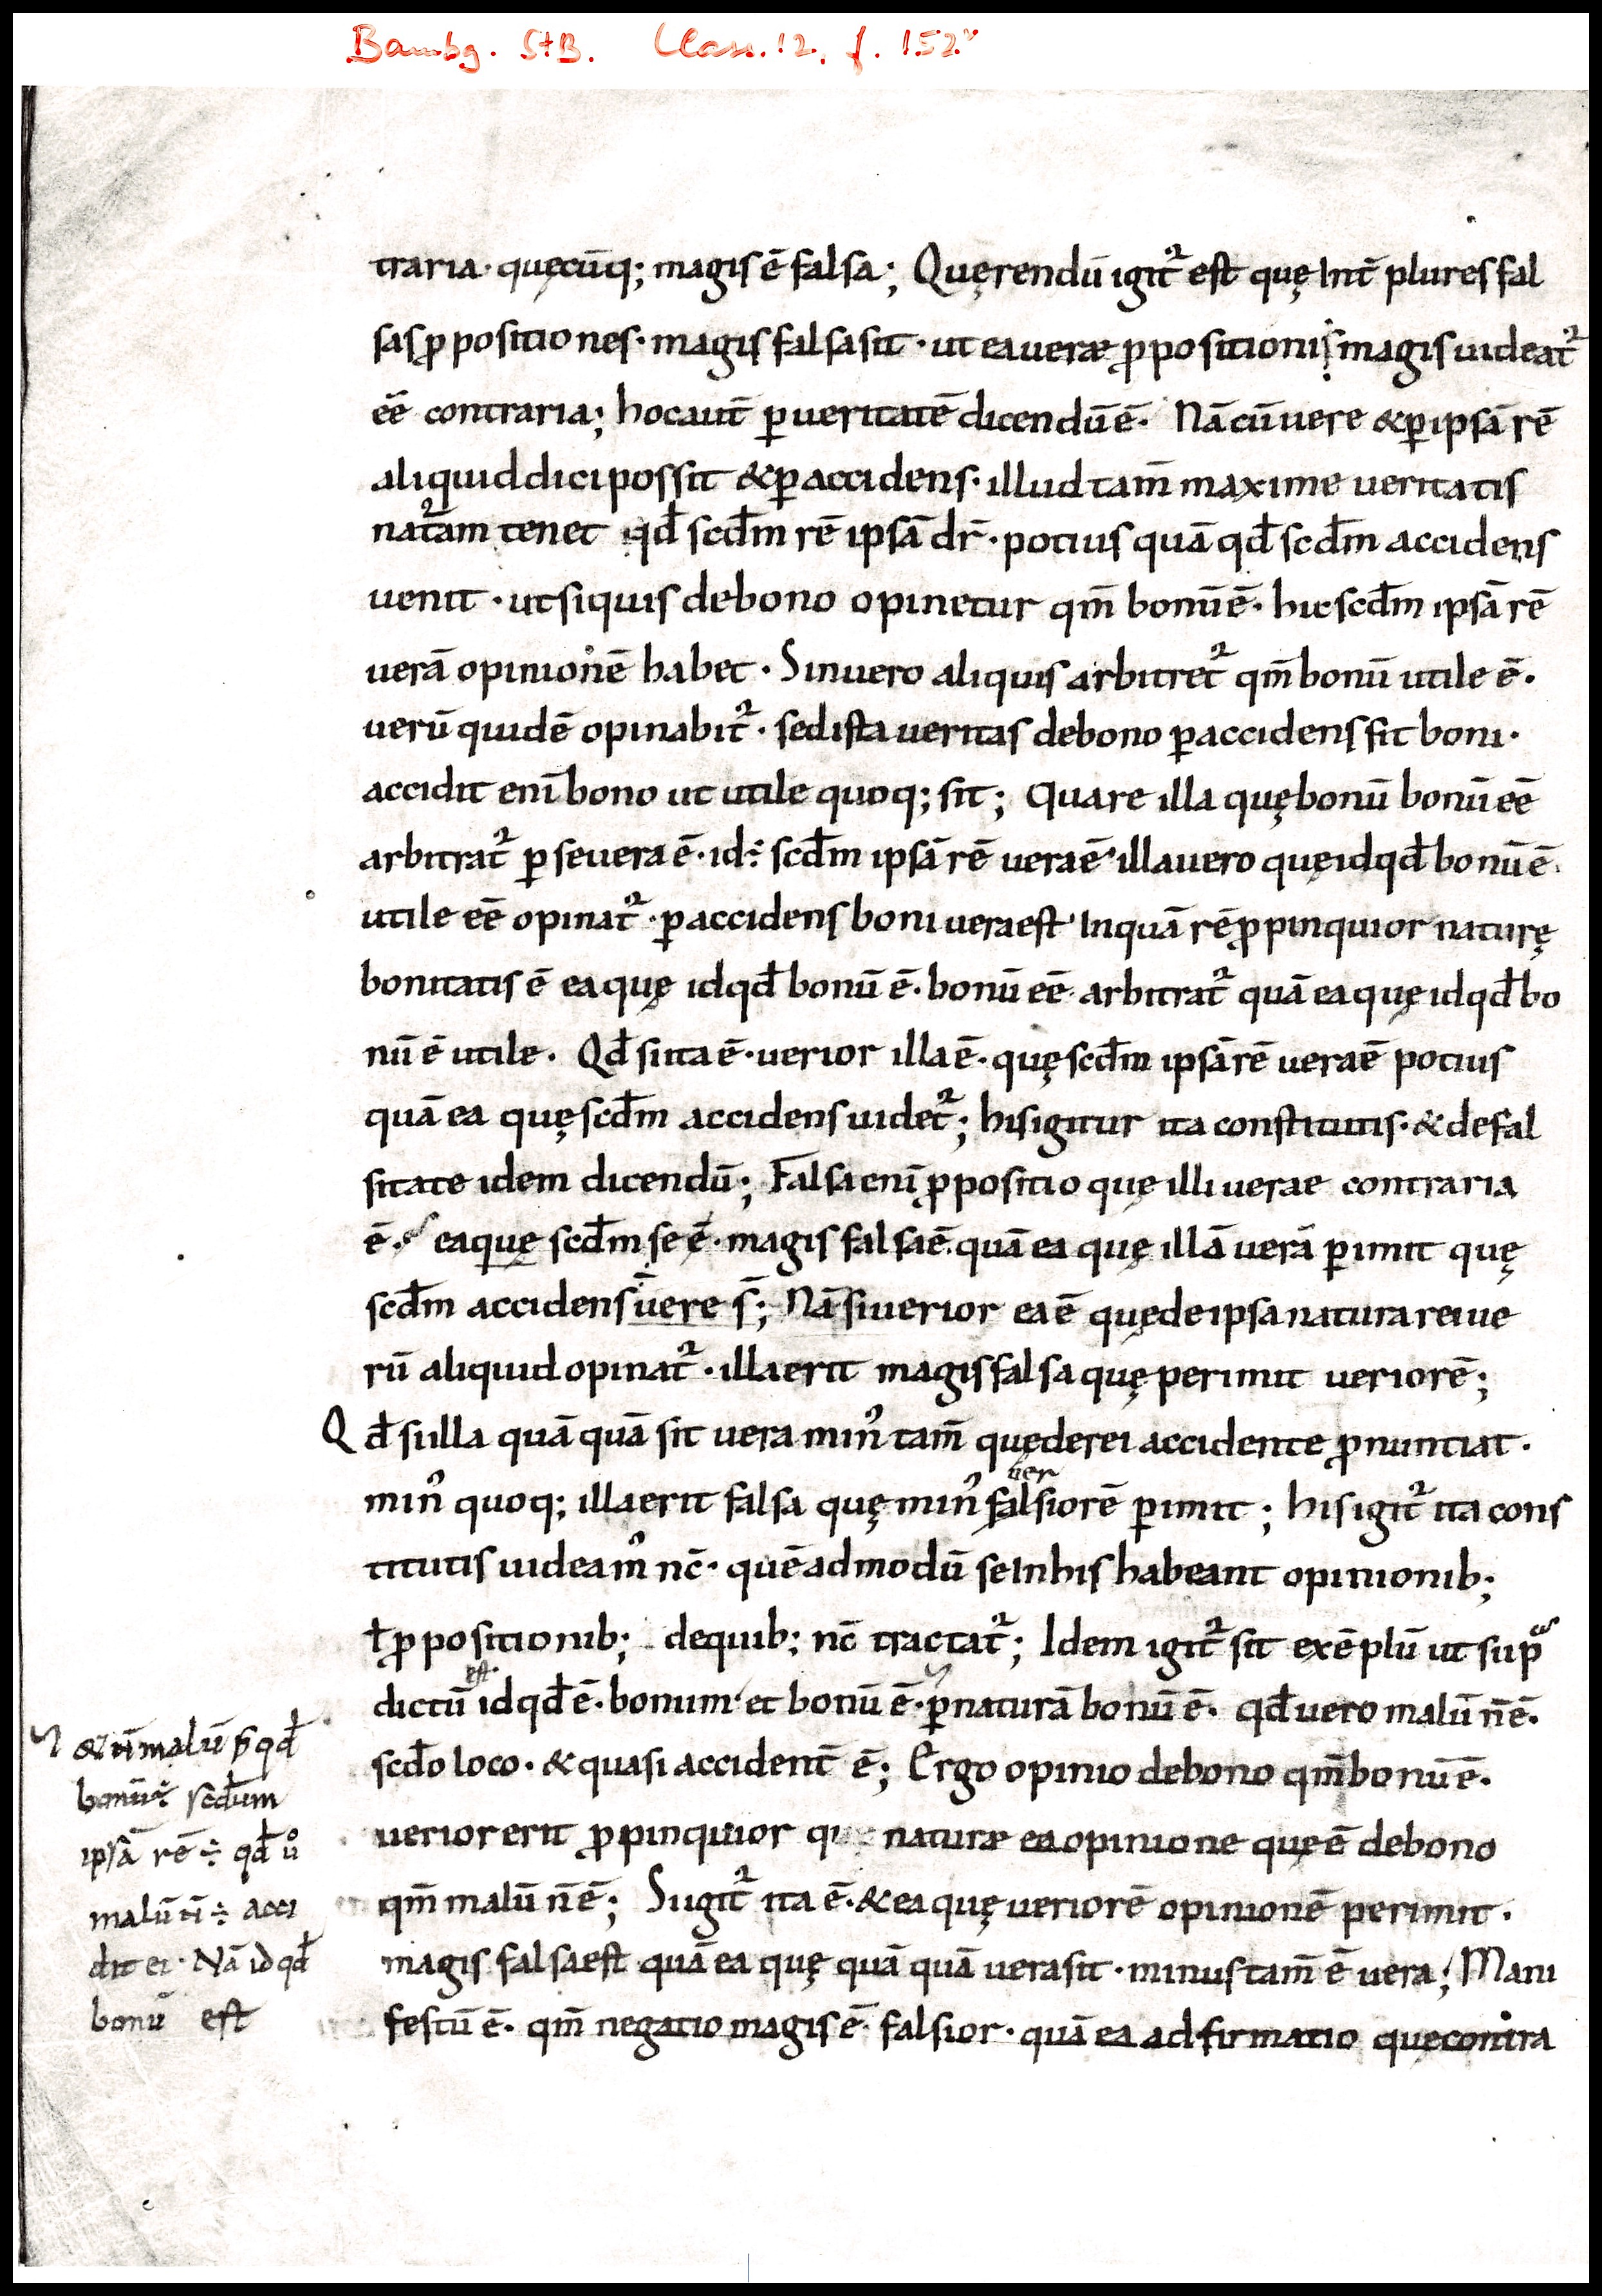 Bambg. StB. Class. 12. f. 152v
traria· quęcūq; magis ē falsa; Quęrendū igit᷑ est quę int̄ plures fal
sas ꝓpositiones· magis falsa sit· ut ea veræ ꝓpositionis magis uideat᷑
eē contraria; hoc aut̄ ꝑ veritatē dicendū ē· Nā cū vere & ꝑ ipsā rē
aliquid dici possit & ꝑ accidens· illud tam̄ maxime veritatis
nat᷑am tenet qđ scđm rē ipsā dr̄· potius quā qđ scđm accidens
uenit· ut si quis de bono opinetur qm̄ bonū ē· hic scđm ipsā rē
uerā opinionē habet· Sin uero aliquis arbitret᷑ qm̄ bonū utile ē·
uerū quidē opinabit᷑· sed ista veritas de bono ꝑ accidens fit boni·
accidit enī bono ut utile quoq; sit; Quare illa quę bonū bonū eē
arbitrat᷑ ꝑ se vera ē· id ÷ scđm ipsā rē vera ē· illa uero quę id qđ bonū ē·
utile eē opinat᷑· ꝑ accidens boni uera est· In quā rē ꝓpinquior naturę
bonitatis ē ea quę id qđ bonū ē· bonū eē arbitrat᷑ quā ea quę id qđ bo
nū ē utile· Qđ si ita ē· uerior illa ē· quę scđm ipsā rē vera ē potius
quā ea quę scđm accidens uidet᷑; his igitur ita constitutis· & de fal
sitate idem dicendū; Falsa enī ꝓpositio quę illi verae contraria
ē· ea quę scđm se ē· magis falsa ē· quā ea quę illā verā ꝑimit quę
scđm accidens vere s̄; Nā si uerior ea ē quę de ipsa natura rei ue
rū aliquid opinat᷑· illa erit magis falsa quę perimit veriorē;
Qđ si illa quā quā sit vera min᾿ tam̄ quę de rei accidente ꝓnuntiat·
uer
min᾿ quoq; illa erit falsa quę min᾿ falsiorē ꝑimit; his igit᷑ ita cons
titutis uideam᾿ nc̄· quēadmodū se In his habeant opinionib;
ł ꝓpositionib; de quib; nc̄ tractat᷑; Idem igit᷑ sit exēplū ut supᵃ
est·
dictū id qđ ē· bonum· et bonū ē· ꝑ naturā bonū ē· qđ vero malū n̄ ē·
scđo loco· & quasi accident̄ ē; Ergo opinio de bono qm̄ bonū ē·
uerior erit ꝓpinquior naturæ ea opinione quę ē de bono
qm̄ malū n̄ ē; Si igit᷑ ita ē· & ea quę veriorē opinionē perimit·
magis falsa est quā ea quę quā quā vera sit· minus tam̄ ē vera; Mani
festū ē· qm̄ negatio magis ē falsior· quā ea adfirmatio quę contra
& n̄ malū p̄ qđ
bonū ÷ scđum
ipsā rē ÷ qđ ů
malū n̄ ÷ acci
dit ei· Nā id qđ
bonū est